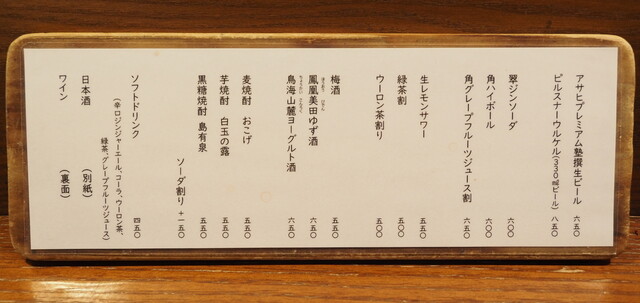 アサヒプレミアム塾撰生ビール 六五〇
ピルスナーウルケル(330㎖ビール) 八五〇
翠ジンソーダ 六〇〇
角ハイボール 六〇〇
角グレープフルーツジュース割 六五〇
生レモンサワー 五五〇
緑茶割 五〇〇
ウーロン茶割り 五〇〇
梅酒 五五〇
鳳凰美田ゆず酒 六五〇
鳥海山麓ヨーグルト酒 六五〇
麦焼酎 おこげ 五五〇
芋焼酎 白玉の露 五五〇
黒糖焼酎 島有泉 五五〇
ソーダ割り +一五〇
ソフトドリンク 四五〇
(辛口ジンジャーエール、コーラ、ウーロン茶、
緑茶、グレープフルーツジュース)
日本酒 (別紙)
ワイン (裏面)